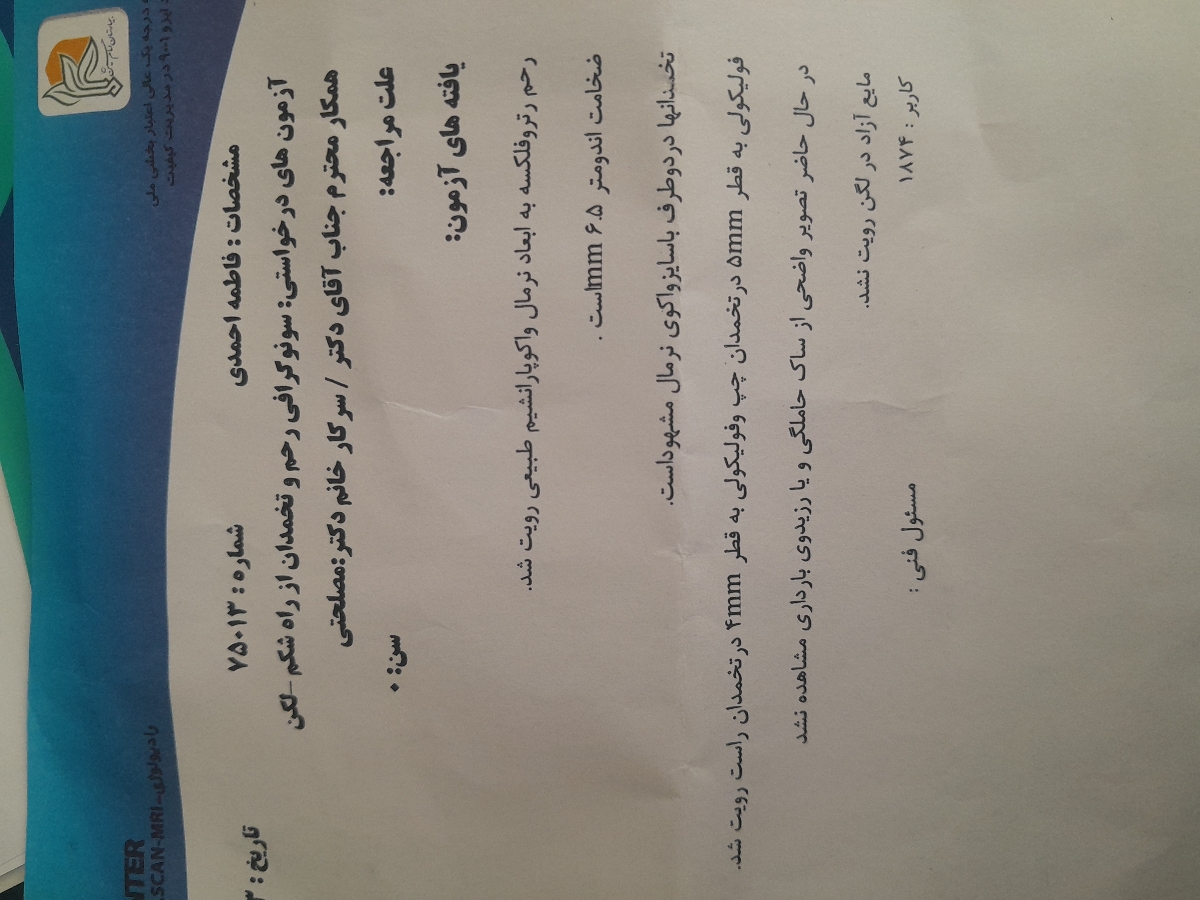 درجه یک عالی اعتبار بخشی ملی
ایزو ۹۰۰۱ در مدیریت کیفیت
NTER
SCAN-MRI-رادیولوژی
تاریخ :
مشخصات : فاطمه احمدی شماره : ۷۵۰۱۳
آزمون های درخواستی: سونوگرافی رحم و تخمدان از راه شکم -لگن
همکار محترم جناب آقای دکتر / سرکار خانم دکتر:مصلحتی
علت مراجعه: سن: ۰
یافته های آزمون:
رحم رتروفلکسه به ابعاد نرمال واکوپارانشیم طبیعی رویت شد.
ضخامت اندومتر ۶.۵ mmاست .
تخمدانها دردوطرف باسایزواکوی نرمال مشهوداست.
فولیکولی به قطر ۵mm درتخمدان چپ وفولیکولی به قطر ۴mm درتخمدان راست رویت شد.
در حال حاضر تصویر واضحی از ساک حاملگی و یا رزیدوی بارداری مشاهده نشد
مایع آزاد در لگن رویت نشد.
کاربر : ۱۸۷۴ مسئول فنی :